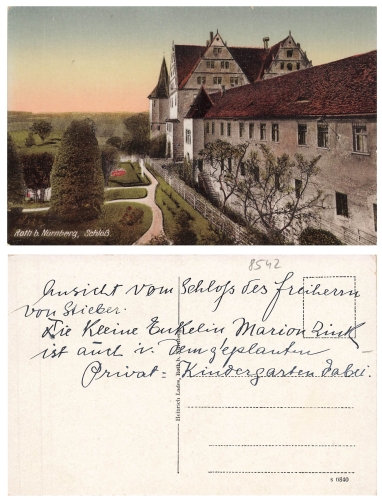 Roth b. Nürnberg, Schloß.
8542
Ansicht vom Schloß des freiherrn
von Stieber.
Die Kleine Enkelin Marion Zink
ist auch i. dem geplanten
Privat - Kindergarten dabei.
Heinrich Laden, Roth b.
s 0840